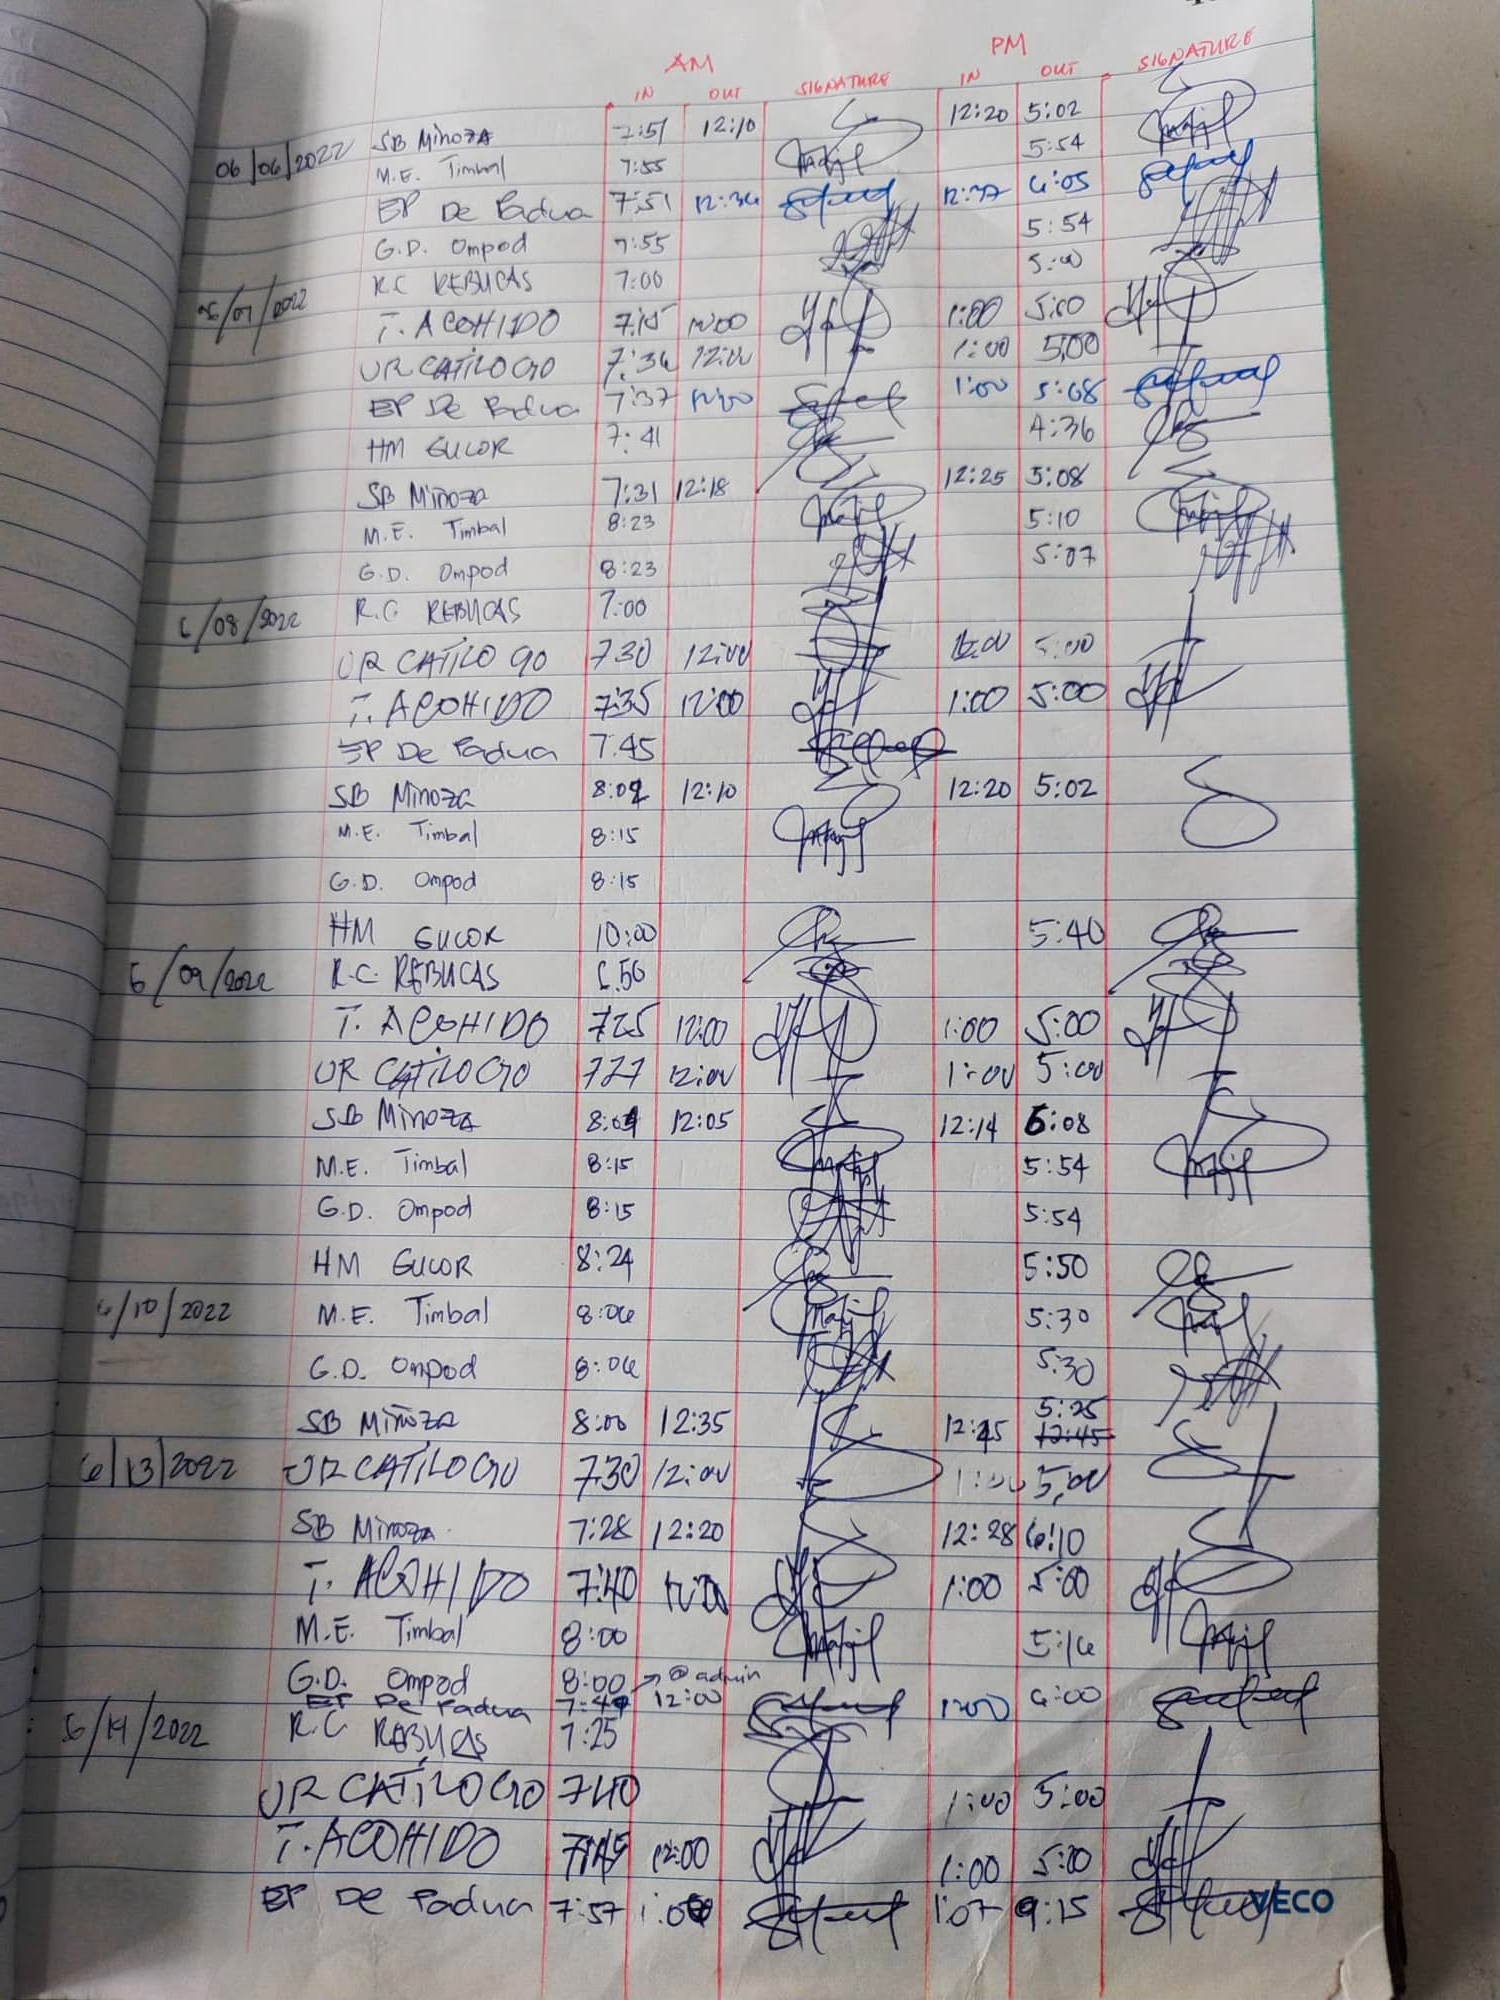 AM PM
IN OUT SIGNATURE IN OUT SIGNATURE
SB Minoza 7:51 12:10 12:20 5:02
06/06/2022 M.E. Timbal 7:55 5:54
EP De Padua 7:51 12:36 12:37 6:05
G.D. Ompod 7:55 5:54
R.C REBUCAS 7:00 5:00
06/07/2022 T. ACOHIDO 7:15 12:00 1:00 5:00
UR CATILOGO 7:36 12:00 1:00 5,00
EP De Padua 7:37 12:00 1:00 5:08
HM GUCOR 7:41 4:36
SB Minoza 7:31 12:18 12:25 5:08
M.E. Timbal 8:23 5:10
G.D. Ompod 8:23 5:07
6/08/2022 R.C. REBUCAS 7:00
UR CATILOGO 730 12:00 5:00
T. ACOHIDO 7:35 12:00 1:00 5:00
EP De Padua 7:45
SB Minoza 8:02 12:10 12:20 5:02
M.E. Timbal 8:15
G.D. Ompod 8:15
HM GUCOR 10:00 5:40
6/09/2022 R.C. REBUCAS 6:56
T. ACOHIDO 725 12:00 1:00 5:00
UR CATILOGO 727 12:00 1:00 5:00
SB Minoza 12:05 12:14 6:08
M.E. Timbal 8:15 5:54
G.D. Ompod 8:15 5:54
HM GUCOR 8:24 5:50
6/10/2022 M.E. Timbal 8:06 5:30
G.D. Ompod 8:06 5:30
SB Miñoza 8:00 12:35 12:45 5:25
12:45
6/13/2022 UR CATILOGO 730 12:00 1:00 5,00
SB Minoza 7:28 12:20 12:28 6:10
T. ACOHIDO 7:40 12:00 1:00 5:00
M.E. Timbal 8:00 5:16
G.D. Ompod 8:00 → @ admin
EP De Padua 12:00 1200 6:00
6/14/2022 R.C REBUCAS 7:25
UR CATILOGO 740 1:00 5:00
T. ACOHIDO 7:45 12:00 1:00 5:00
EP De Padua 7:57 1:07 9:15
VECO